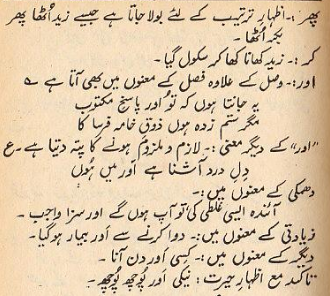 پھر :۔ اظہارِ ترتیب کے لئے بولا جاتا ہے جیسے زید اُٹھا پھر
بکر اُٹھا۔
کر :۔ زید کھانا کھا کر سکول گیا۔
اور :۔ وصل کے علاوہ فصل کے معنوں میں بھی آتا ہے ؎
یہ جانتا ہوں کہ تُو اور پاسخِ مکتوب
مگر ستم زدہ ہوں ذوقِ خامہ فرسا کا
"اور" کے دیگر معنی :۔ لازم و ملزوم ہونے کا پتہ دیتا ہے۔ ع
دِل درد آشنا ہے اَور میں ہُوں
دھمکی کے معنوں میں :۔
آئندہ ایسی غلطی کی تو آپ ہوں گے اور سزا واجب۔
زیادتی کے معنوں میں :۔ دوا کرنے سے اَور بیمار ہو گیا۔
دیگر کے معنوں میں :۔ کِسی اَور دن آنا۔
تاکید مع اظہارِ حیرت : نیکی اور پُوچھ پُوچھ۔